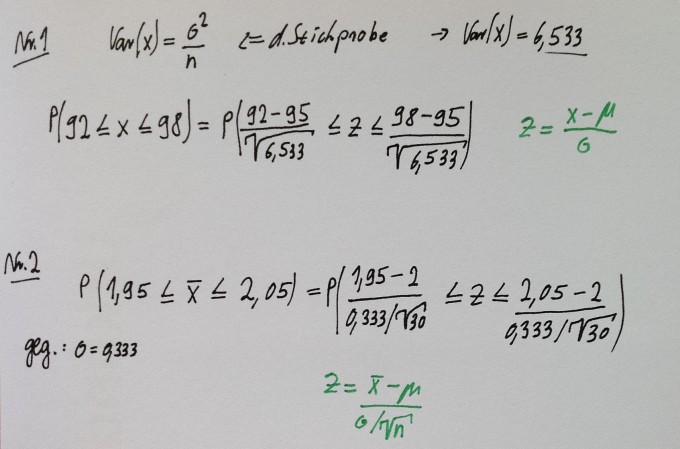 Nr.1 Var(x) = σ²/n ≙ d. Stichprobe → Var(x) = 6,533
P(92 ≤ x ≤ 98) = P((92-95)/√6,533 ≤ z ≤ (98-95)/√6,533) z = (x-μ)/σ
Nr.2
P(1,95 ≤ x̄ ≤ 2,05) = P((1,95-2)/(0,333/√30) ≤ z ≤ (2,05-2)/(0,333/√30))
geg.: σ = 0,333
z = (x̄-μ)/(σ/√n)